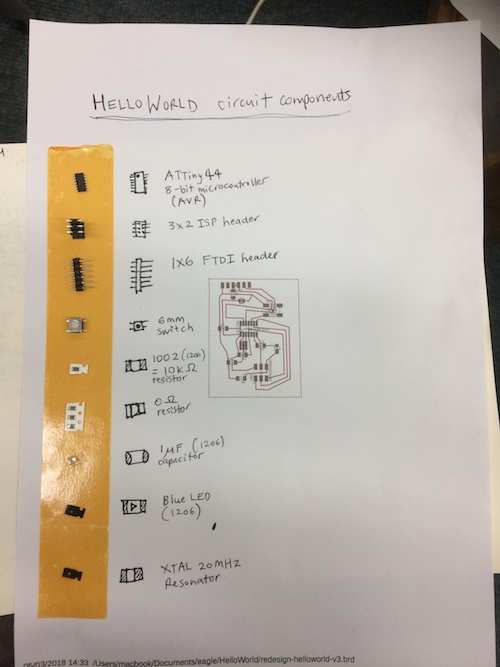 HELLOWORLD circuit components
ATTiny44
8-bit microcontroller
(AVR)
3x2 ISP header
1x6 FTDI header
6mm
switch
1002 (1206)
= 10k Ω
resistor
0Ω
resistor
1µF (1206)
capacitor
Blue LED
(1206)
XTAL 20MHz
Resonator
05/03/2018 14:33 /Users/macbook/Documents/eagle/HelloWorld/redesign-helloworld-v3.brd